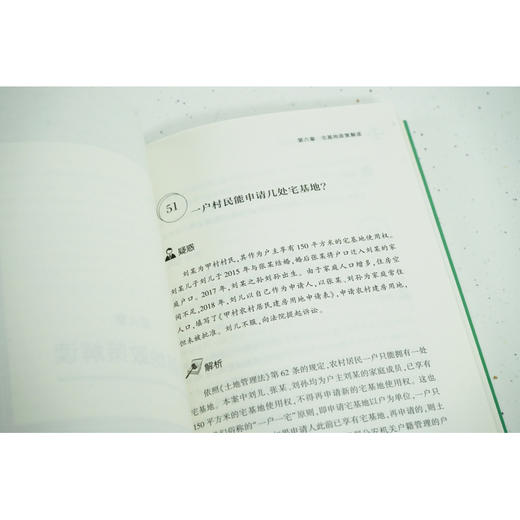 第六章 宅基地政策解读
51
一户村民能申请几处宅基地?
疑惑
刘某为甲村村民,其作为户主享有150平方米的宅基地使用权。
刘某儿子刘儿于2015年与张某结婚,婚后张某将户口迁入刘某的家
庭户口。2017年,刘某之孙刘孙出生。由于家庭人口增多,住房空
间不足,2018年,刘儿以自己作为申请人,以张某、刘孙为家庭常住
人口,填写了《甲村农村居民建房用地申请表》,申请农村建房用地,
但未被批准。刘儿不服,向法院提起诉讼。
解析
依照《土地管理法》第62条的规定,农村居民一户只能拥有一处
宅基地。本案中刘儿、张某、刘孙均为户主刘某的家庭成员,已享有
150平方米的宅基地使用权,不得再申请新的宅基地使用权。这也
俗称的“一户一宅”原则,即申请宅基地以户为单位,一户只
果申请人此前已享有宅基地,再申请的,则土
公安机关户籍管理的户
政策解读